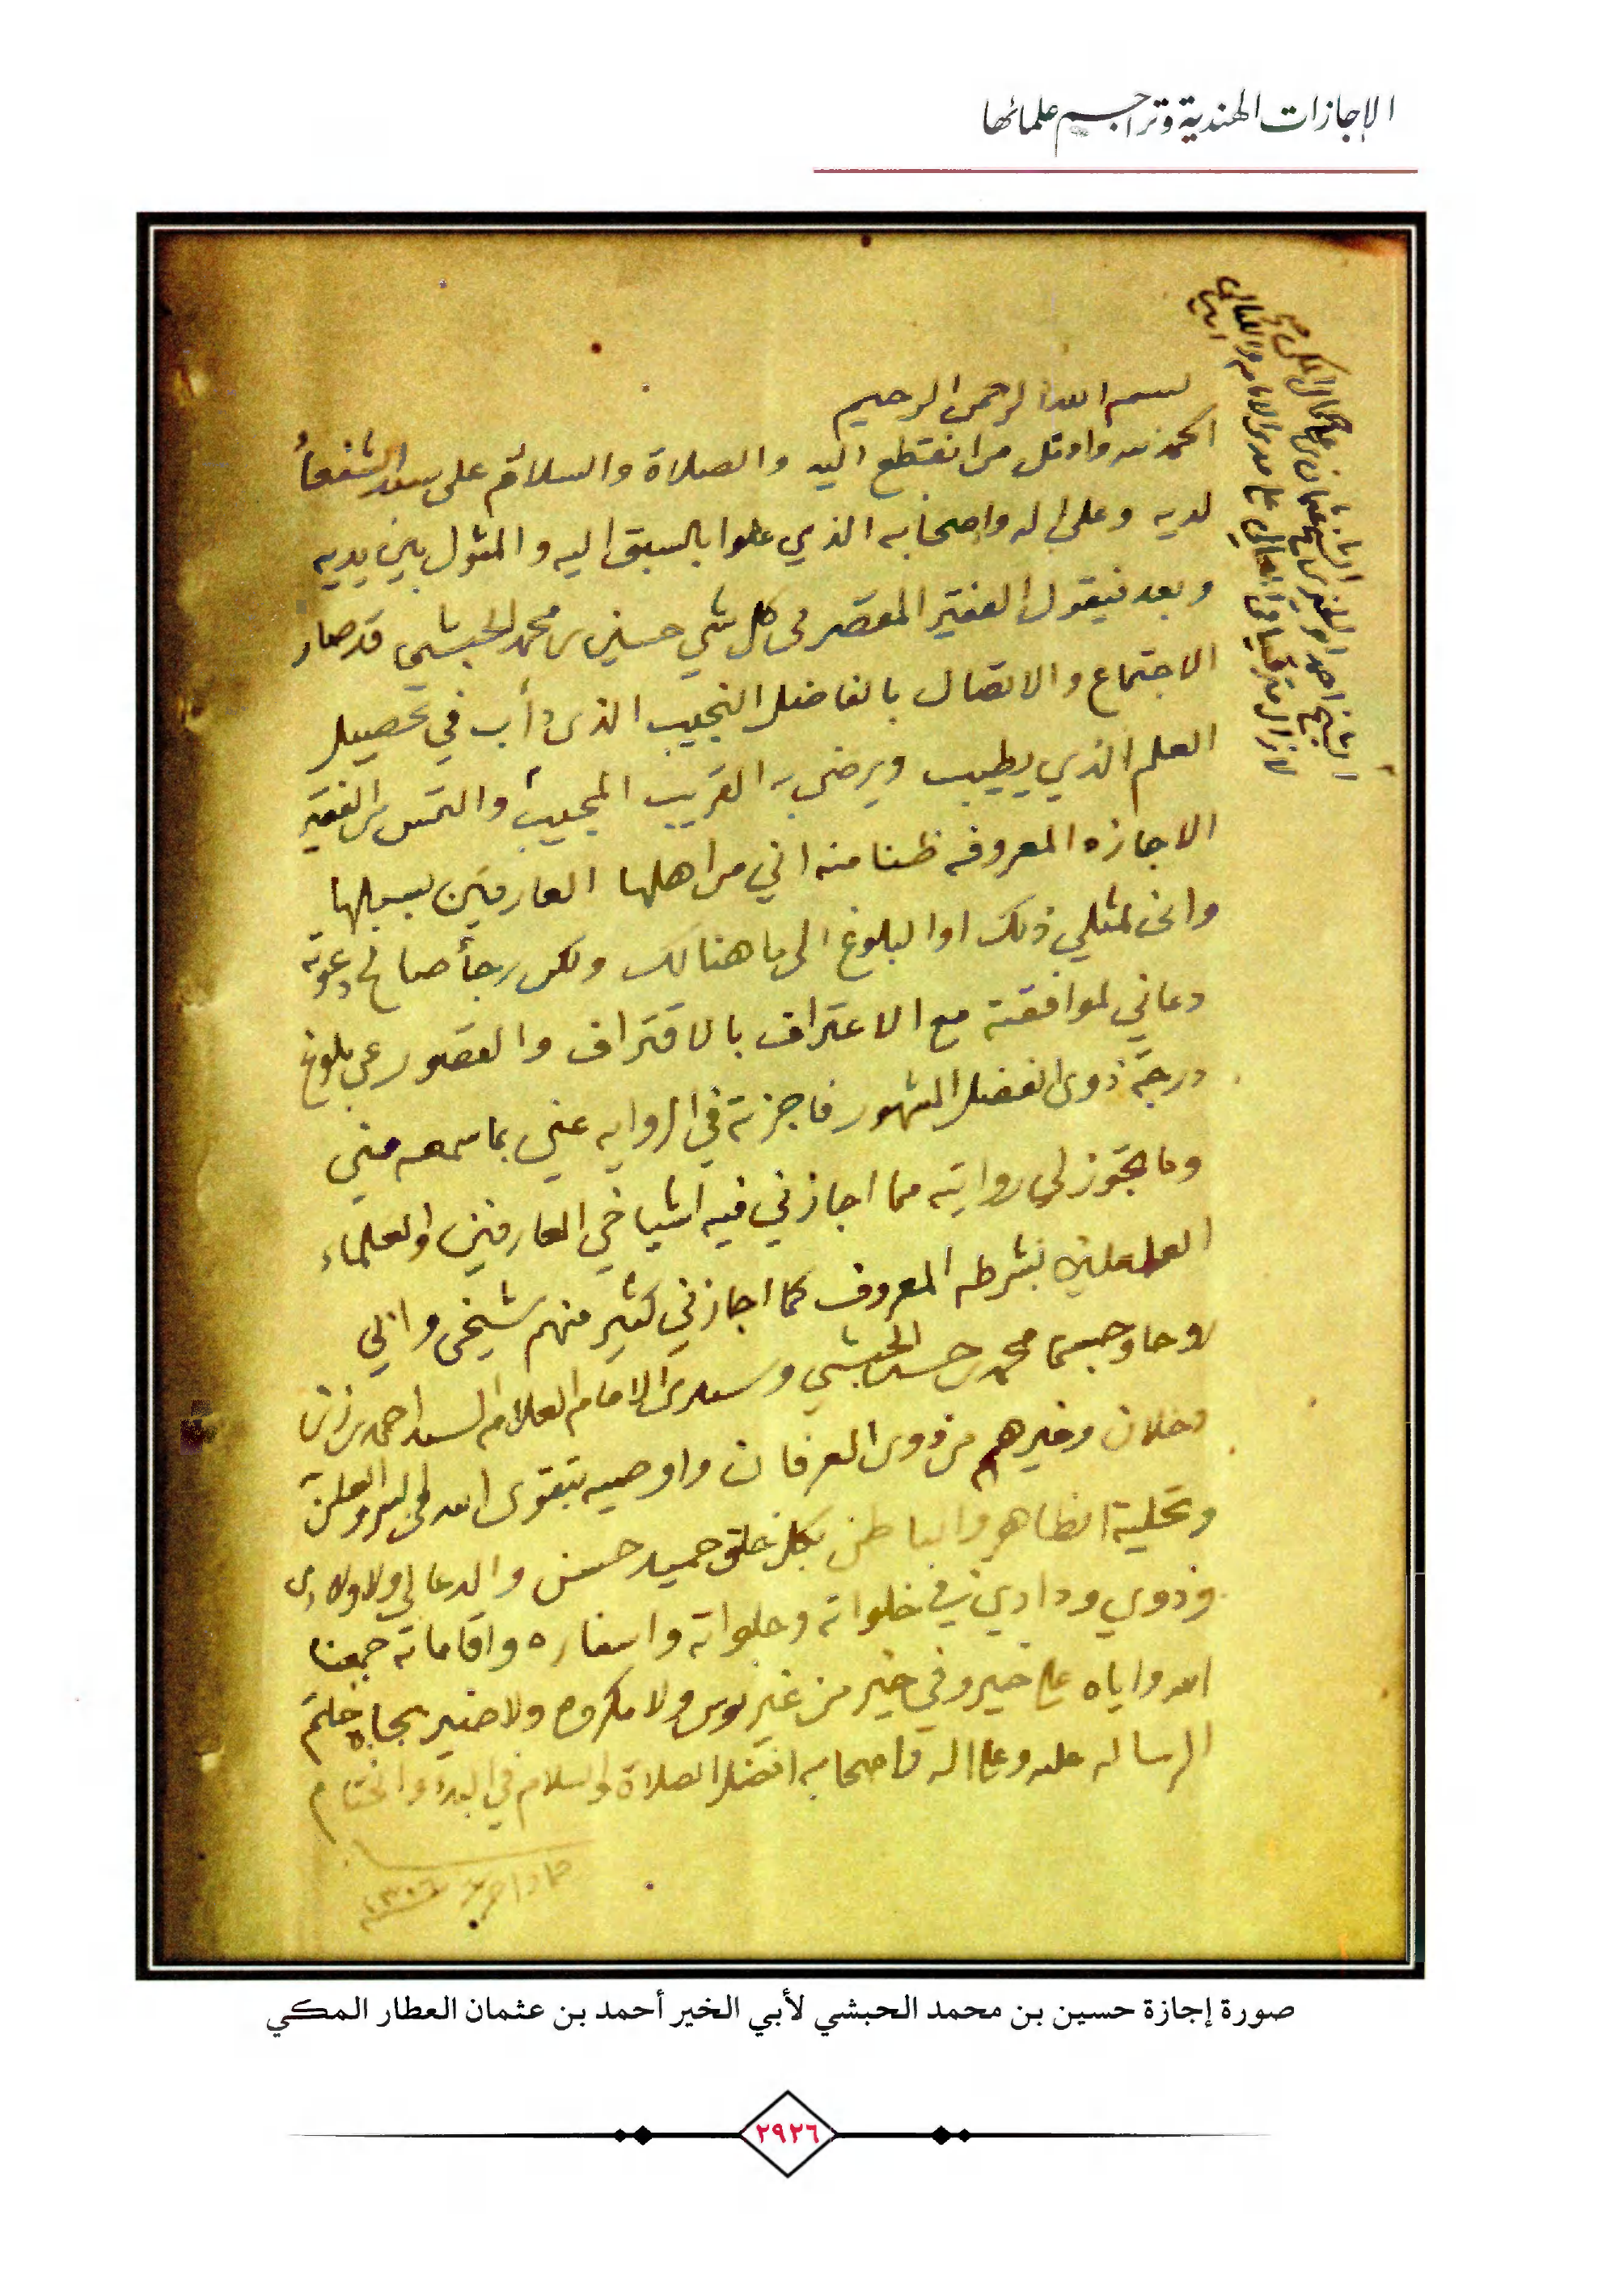 الإجازات الهندية وتراجم علمائها
بسم الله الرحمن الرحيم
الحمد لله من انقطع اليه والصلاة والسلام على سيد الشفعأ
لديه وعلى اله واصحابه الذي علوا بالسبق اليه والمثول بين يديه
وبعد فيقول الفقير المقصر فى كل شي حسين بن محمد الحبشي قد صار
الاجتماع والاتصال بالفاضل النجيب الذى دأب في تحصيل
العلم الذي يطيب ويرضى به القريب المجيب والتمس من الفقير
الاجازه المعروفه ظنا منه اني من اهلها العارفين بسبلها
وانى لمثلي ذلك او البلوغ الى ما هنالك ولكن رجأ صالح دعوته
دعاني لموافقته مع الاعتراف بالاقتراف والقصور عن بلوغ
درجة ذوى الفضل المشهور فاجزته في الروايه عني بما سمعه مني
وما يجوز لي روايته مما اجازني فيه اشياخي العارفين والعلماء
العاملين بشرطه المعروف كما اجازني كثير منهم شيخى وابي
روحا وجسما محمد بن حسين الحبشي وسيدى الامام العلامه السيد احمد بن زيني
دحلان وغيرهم من ذوى العرفان واوصيه بتقوى الله فى السر والعلن
وتحلية الظاهر والباطن بكل خلق حميد حسن والدعا لي ولاولادى
وذوي ودادي في خلواته وجلواته واسفاره واقاماته جمعنا
الله واياه على خير وفي خير من غير بوس ولا مكروه ولا ضير بجاه خاتم
الرساله عليه وعلى اله واصحابه افضل الصلاة والسلام في البدء والختام
١٣٠٦
الشيخ احمد ابو الخير بن الشيخ عثمان بن على جمال المكى
لا زال مترقيا فى المعالي على مدى الايام والليالى
امين
صورة إجازة حسين بن محمد الحبشي لأبي الخير أحمد بن عثمان العطار المكي
٢٩٢٦